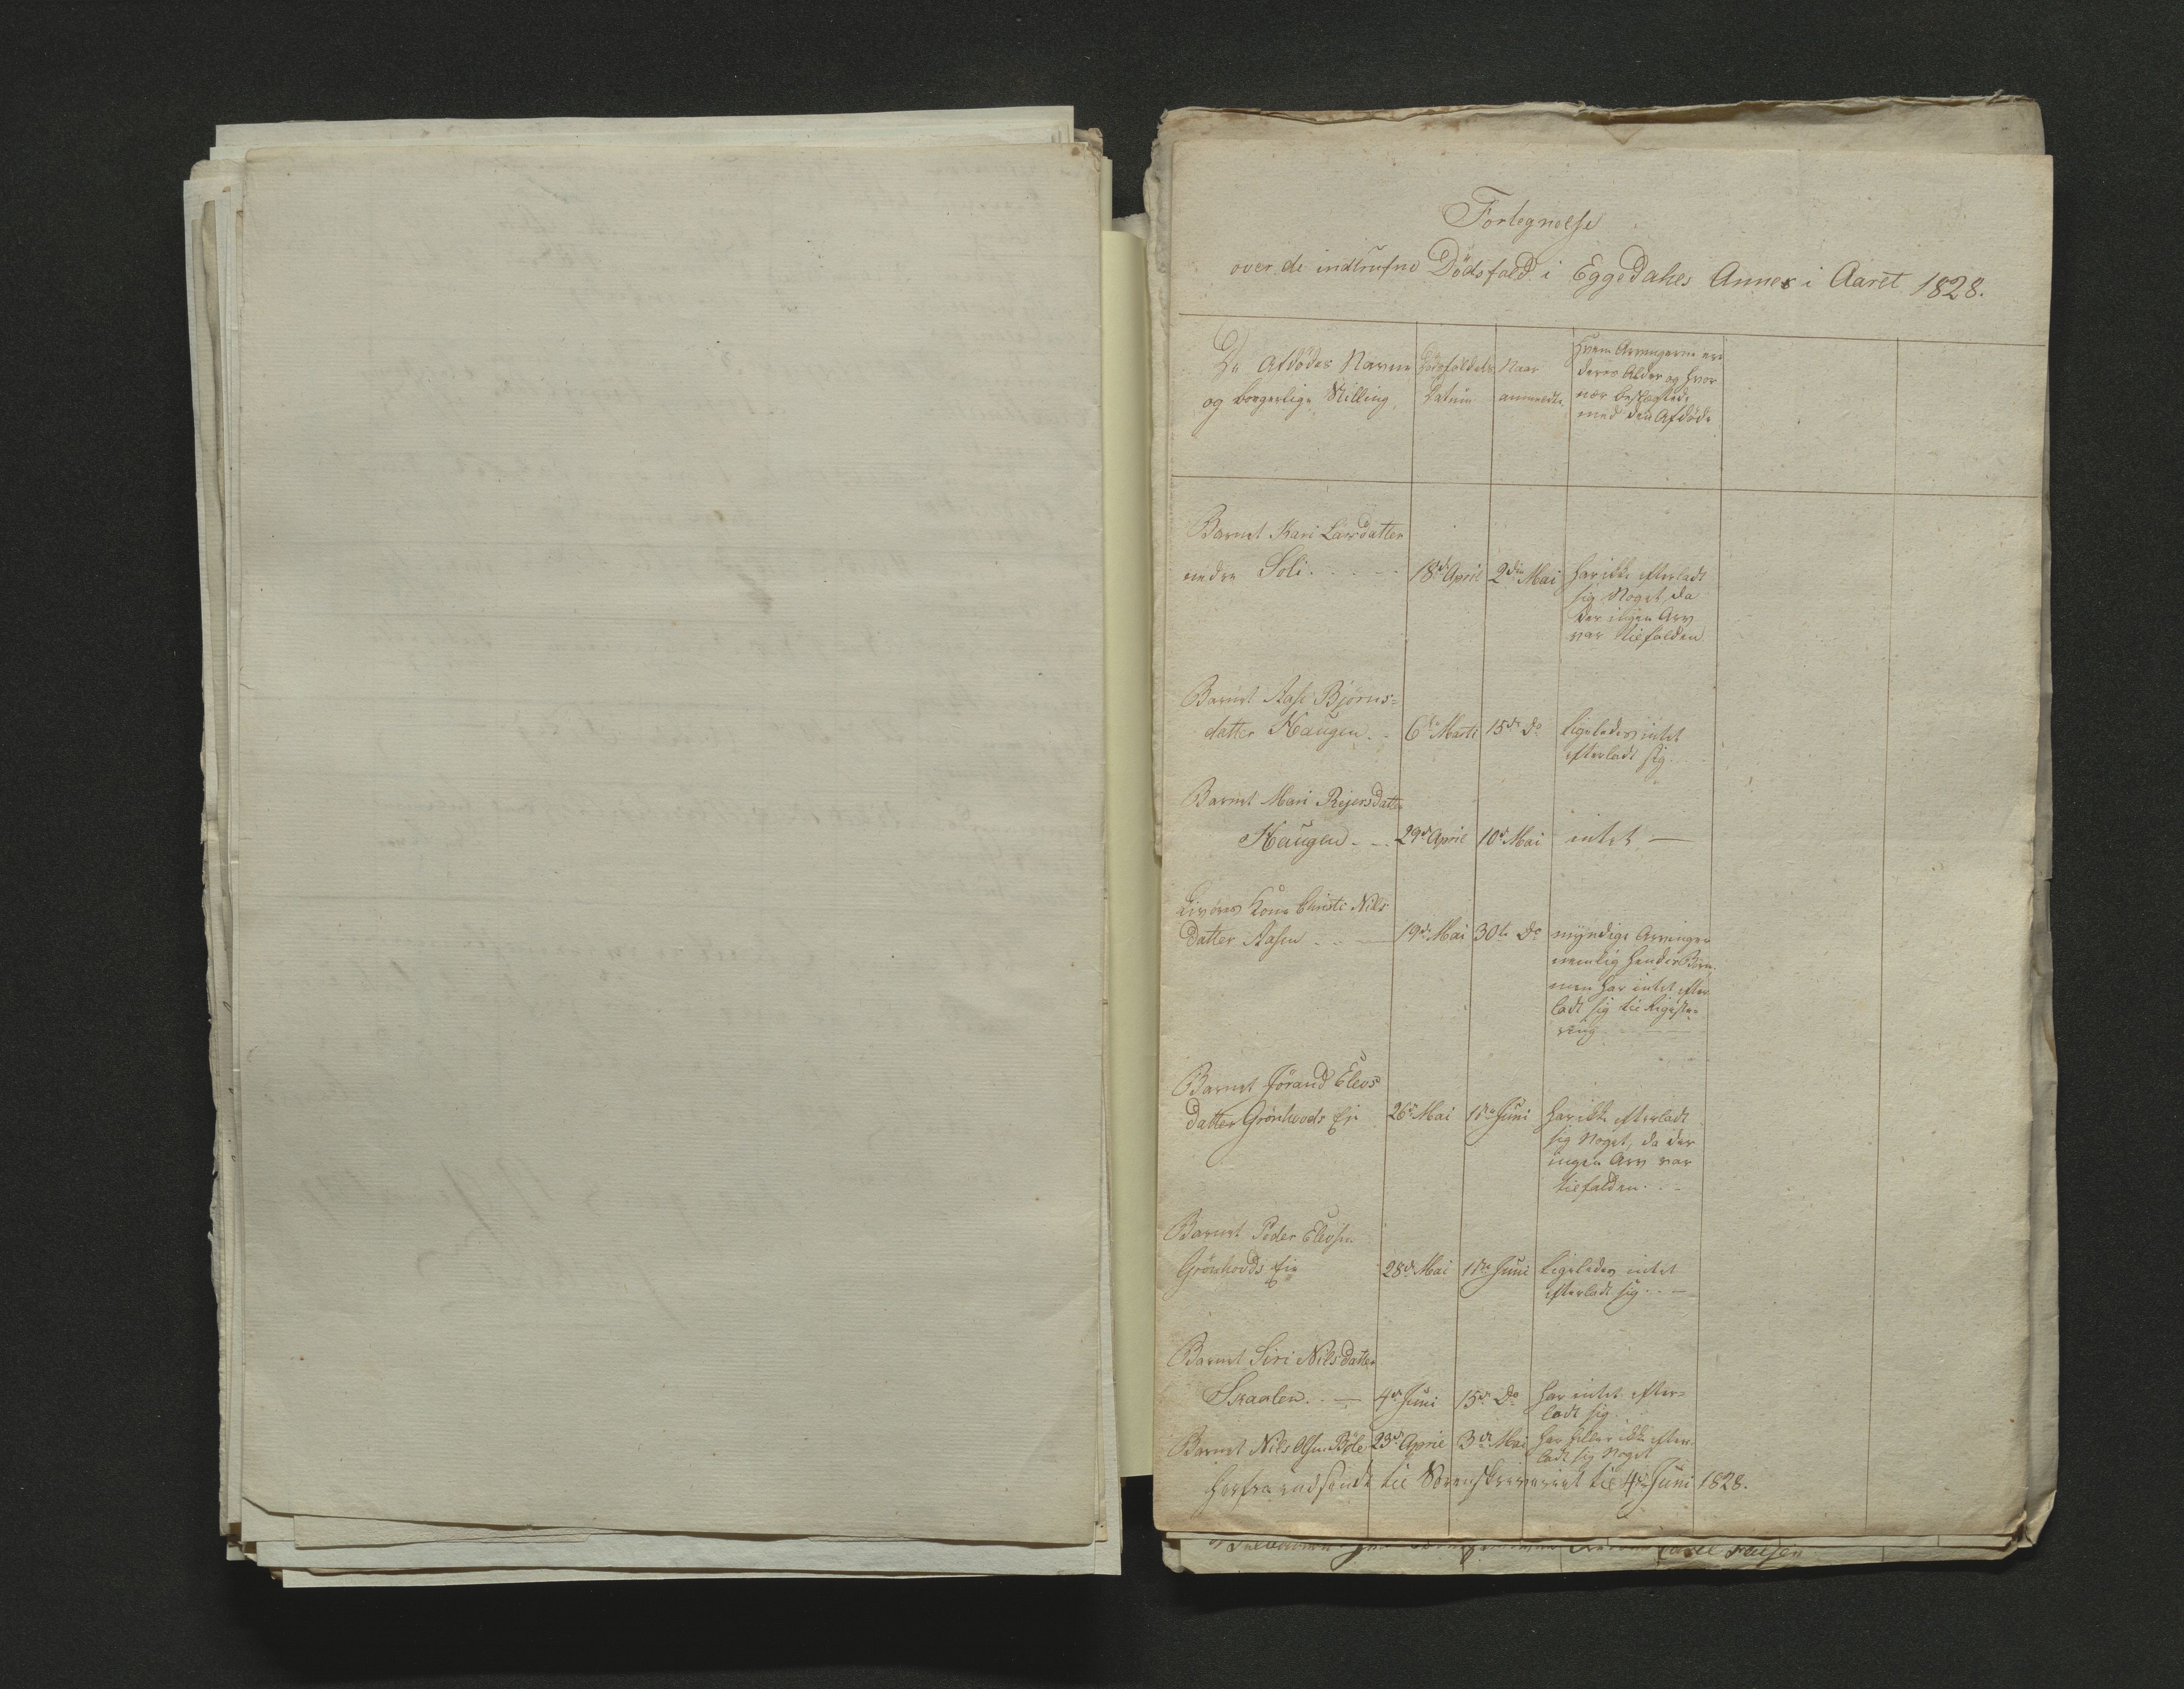 Fortegnelse
over de indtrufne Dödsfald i Eggedahls Annex i Aaret 1828.
De Afdödes Navne
og borgerlige Stilling
Dödsfaldets
Datum
Naar
anmeldte
Hvem Arvingerne ere
deres Alder og hvor
nær beslægtede
med den Afdöde
Barnet Kari Larsdatter
nedre Soli
18d April
2den Mai
har ikke efterladt
sig Noget, da
der ingen Arv
var tilfalden
Barnet Aase Bjørns-
datter Haugen
6te Marti
15de Do
ligeledes intet
efterladt sig.
Barnet Mari Reiersdatter
Haugen
29d April
10d Mai
intet
Kone Christi Nils
datter Aasen
19d Mai
30te Do
myndige Arvinger
nemlig hendes Börn
men har intet efter
ladt sig til Registe-
ring
Barnet Jörand Elevs
datter Grönhovds Eje
26d Mai
1ste Juni
har ikke efterladt
sig Noget, da der
ingen Arv var
tilfalden.
Barnet Peder Elevsen
Grönhovds Eje
28de Mai
1ste Juni
ligeledes intet
efterladt sig
Barnet Siri Nilsdatter
Skaalen
4de Juni
15de Do
har intet efter-
ladt sig
Barnet Nils Olsen Böle
23d April
3die Mai
har heller ikke efter
ladt sig Noget
Herfra indsendt til Sorenskriveriet til 4de Juni 1828.